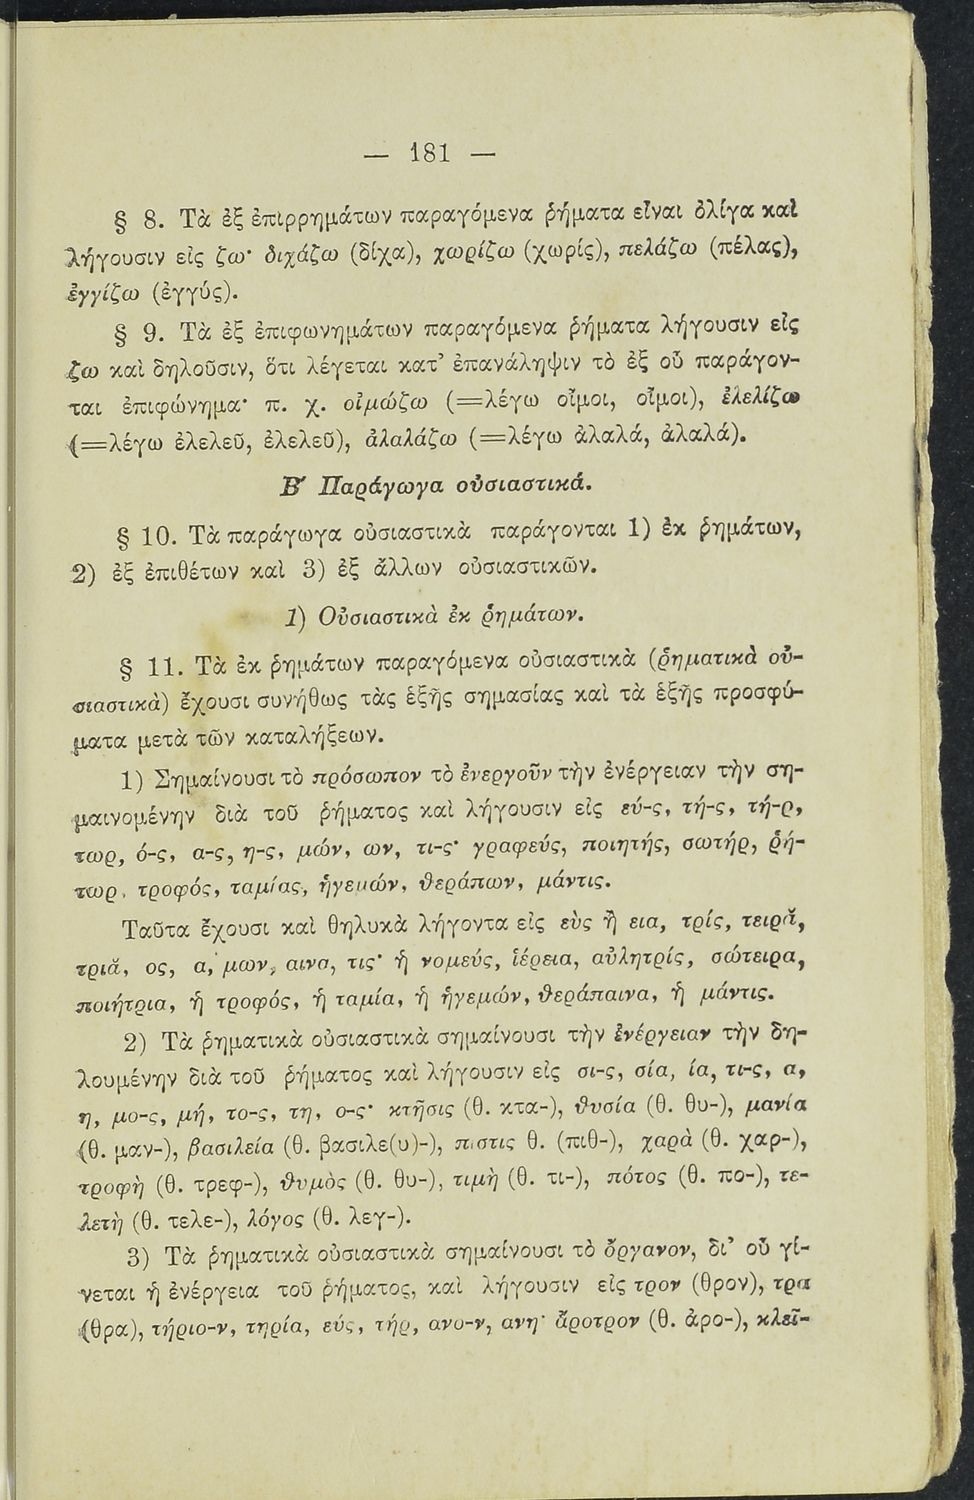 — 181 —
§ 8. Τὰ ἐξ ἐπιρρημάτων παραγόμενα ῥήματα εἶναι ὀλίγα καὶ
λήγουσιν εἰς ζω· διχάζω (δίχα), χωρίζω (χωρίς), πελάζω (πέλας),
ἐγγίζω (ἐγγύς).
§ 9. Τὰ ἐξ ἐπιφωνημάτων παραγόμενα ῥήματα λήγουσιν εἰς
ζω καὶ δηλοῦσιν, ὅτι λέγεται κατ’ ἐπανάληψιν τὸ ἐξ οὗ παράγον-
ται ἐπιφώνημα· π. χ. οἰμώζω (=λέγω οἴμοι, οἴμοι), ἐλελίζω
(=λέγω ἐλελεῦ, ἐλελεῦ), ἀλαλάζω (=λέγω ἀλαλά, ἀλαλά).
Β′ Παράγωγα οὐσιαστικά.
§ 10. Τὰ παράγωγα οὐσιαστικὰ παράγονται 1) ἐκ ῥημάτων,
2) ἐξ ἐπιθέτων καὶ 3) ἐξ ἄλλων οὐσιαστικῶν.
1) Οὐσιαστικὰ ἐκ ῥημάτων.
§ 11. Τὰ ἐκ ῥημάτων παραγόμενα οὐσιαστικὰ (ῥηματικὰ οὐ-
σιαστικὰ) ἔχουσι συνήθως τὰς ἑξῆς σημασίας καὶ τὰ ἑξῆς προσφύ-
ματα μετὰ τῶν καταλήξεων.
1) Σημαίνουσι τὸ πρόσωπον τὸ ἐνεργοῦν τὴν ἐνέργειαν τὴν ση-
μαινομένην διὰ τοῦ ῥήματος καὶ λήγουσιν εἰς εύ-ς, τή-ς, τή-ρ,
τωρ, ό-ς, α-ς, η-ς, μών, ων, τι-ς· γραφεύς, ποιητής, σωτήρ, ῥή-
τωρ, τροφός, ταμίας, ἡγεμών, θεράπων, μάντις.
Ταῦτα ἔχουσι καὶ θηλυκὰ λήγοντα εἰς εὺς ἢ εια, τρίς, τειρᾰ,
τριᾰ, ος, α, μων, αινα, τις· ἡ νομεύς, ἱέρεια, αὐλητρίς, σώτειρα,
ποιήτρια, ἡ τροφός, ἡ ταμία, ἡ ἡγεμών, θεράπαινα, ἡ μάντις.
2) Τὰ ῥηματικὰ οὐσιαστικὰ σημαίνουσι τὴν ἐνέργειαν τὴν δη-
λουμένην διὰ τοῦ ῥήματος καὶ λήγουσιν εἰς σι-ς, σία, ία, τι-ς, α,
η, μο-ς, μή, το-ς, τη, ο-ς· κτῆσις (θ. κτα-), θυσία (θ. θυ-), μανία
(θ. μαν-), βασιλεία (θ. βασιλε(υ)-), πίστις θ. (πιθ-), χαρὰ (θ. χαρ-),
τροφὴ (θ. τρεφ-), θυμὸς (θ. θυ-), τιμὴ (θ. τι-), πότος (θ. πο-), τε-
λετὴ (θ. τελε-), λόγος (θ. λεγ-).
3) Τὰ ῥηματικὰ οὐσιαστικὰ σημαίνουσι τὸ ὄργανον, δι’ οὗ γί-
νεται ἡ ἐνέργεια τοῦ ῥήματος, καὶ λήγουσιν εἰς τρον (θρον), τρα
(θρα), τήριο-ν, τηρία, εύς, τήρ, ανο-ν, ανη· ἄροτρον (θ. ἀρο-), κλεῖ-